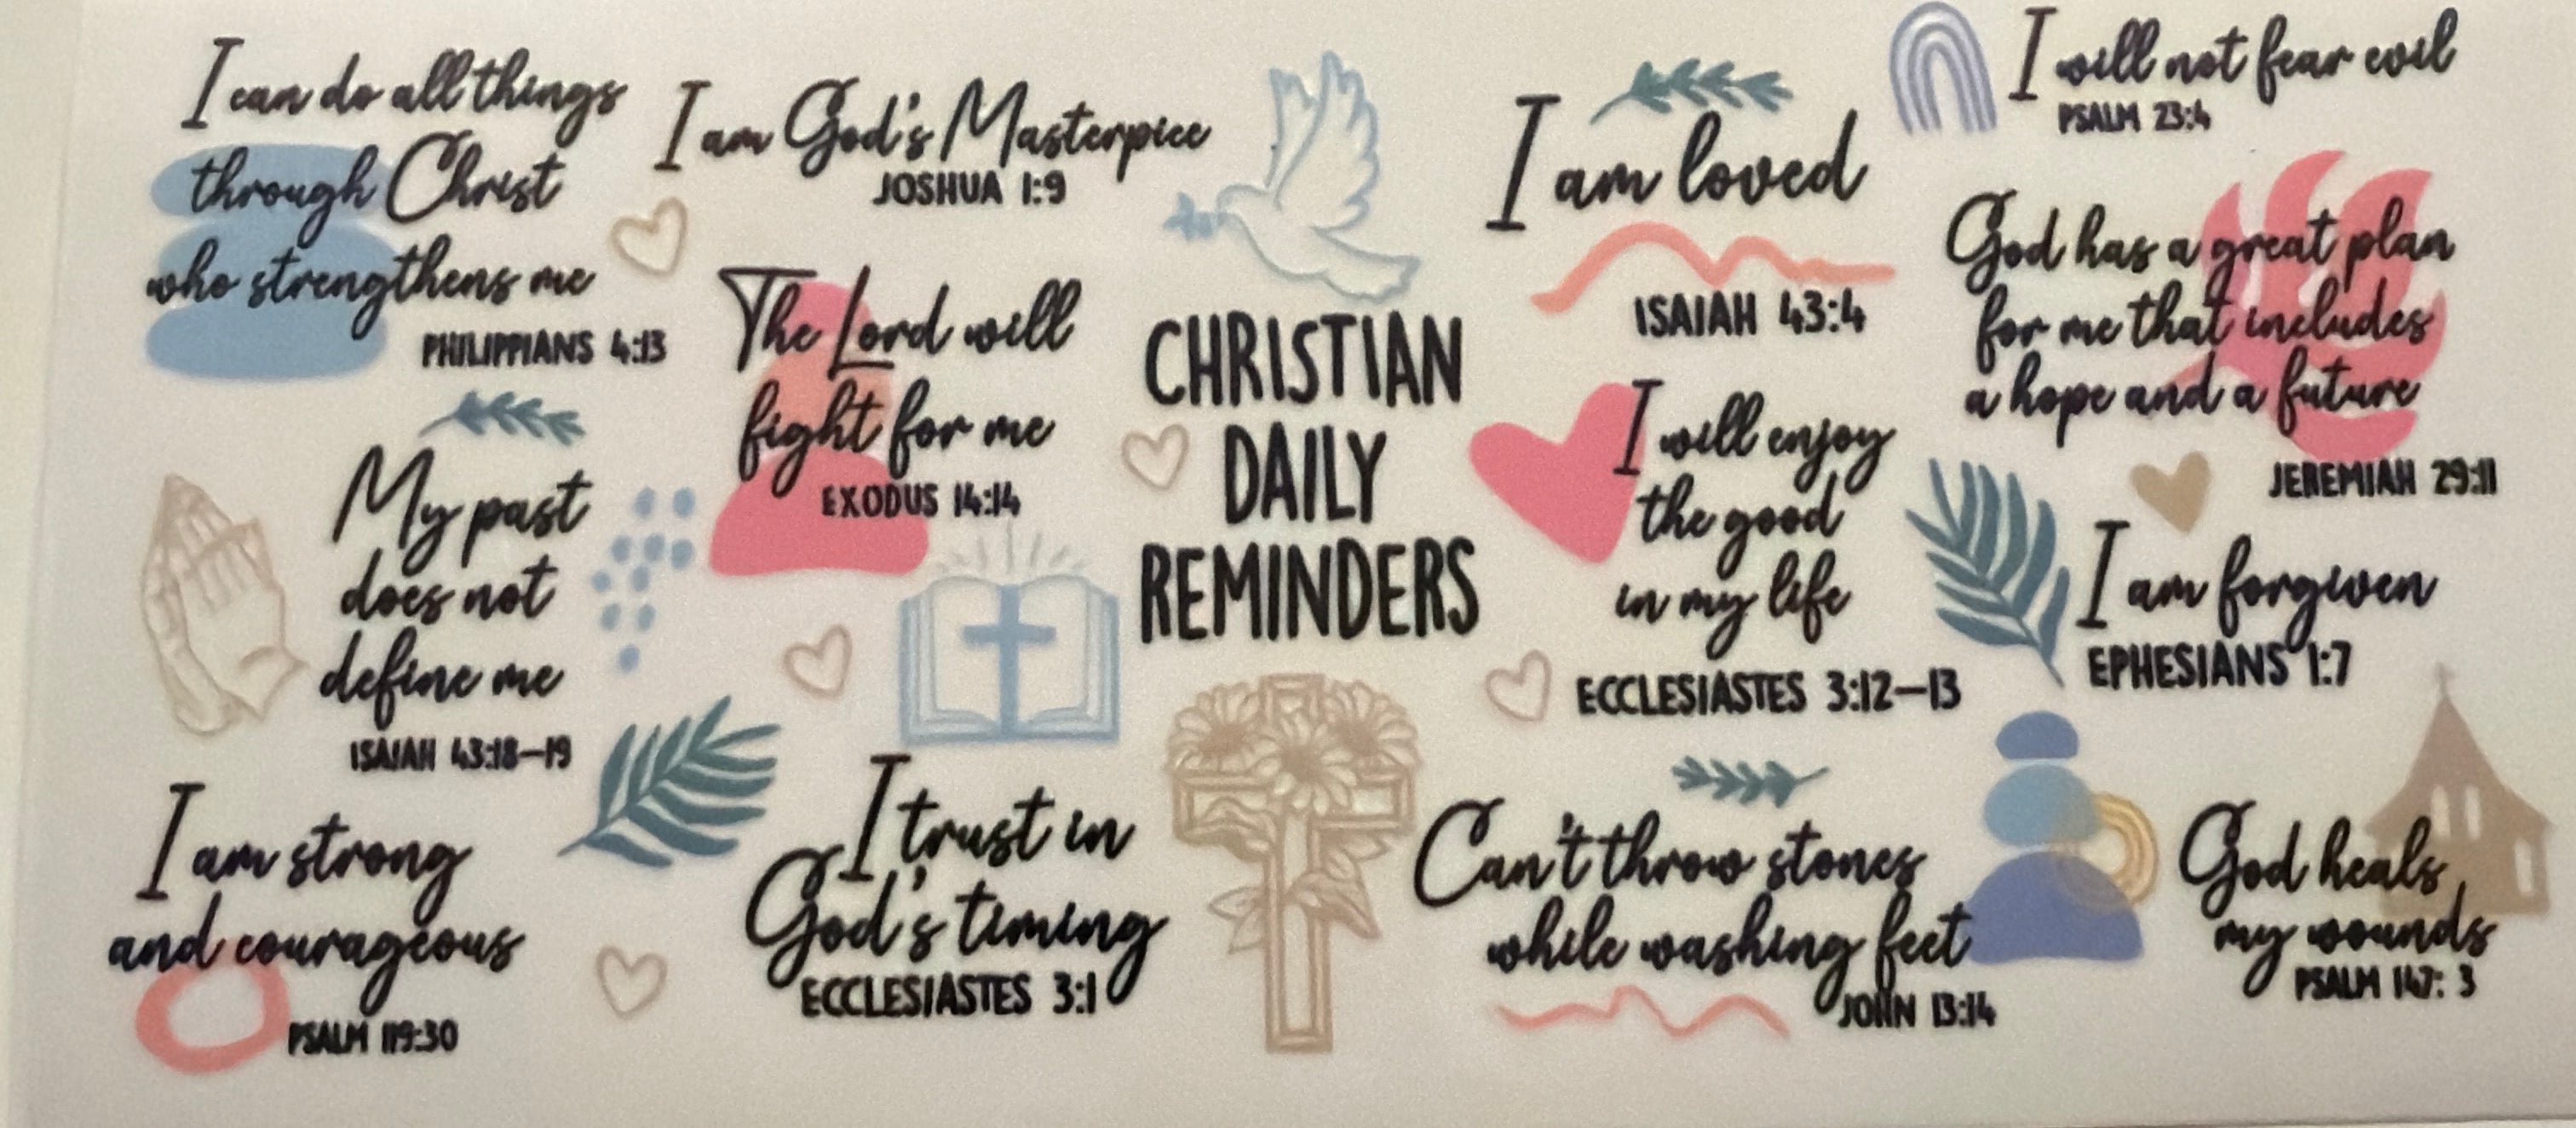 I can do all things
through Christ
who strengthens me
PHILIPPIANS 4:13
I am God's Masterpiece
JOSHUA 1:9
The Lord will
fight for me
EXODUS 14:14
My past
does not
define me
ISAIAH 43:18–19
I am strong
and courageous
PSALM 119:30
I trust in
God's timing
ECCLESIASTES 3:1
CHRISTIAN
DAILY
REMINDERS
I am loved
ISAIAH 43:4
I will not fear evil
PSALM 23:4
God has a great plan
for me that includes
a hope and a future
JEREMIAH 29:11
I will enjoy
the good
in my life
ECCLESIASTES 3:12–13
I am forgiven
EPHESIANS 1:7
Can't throw stones
while washing feet
JOHN 13:14
God heals
my wounds
PSALM 147: 3